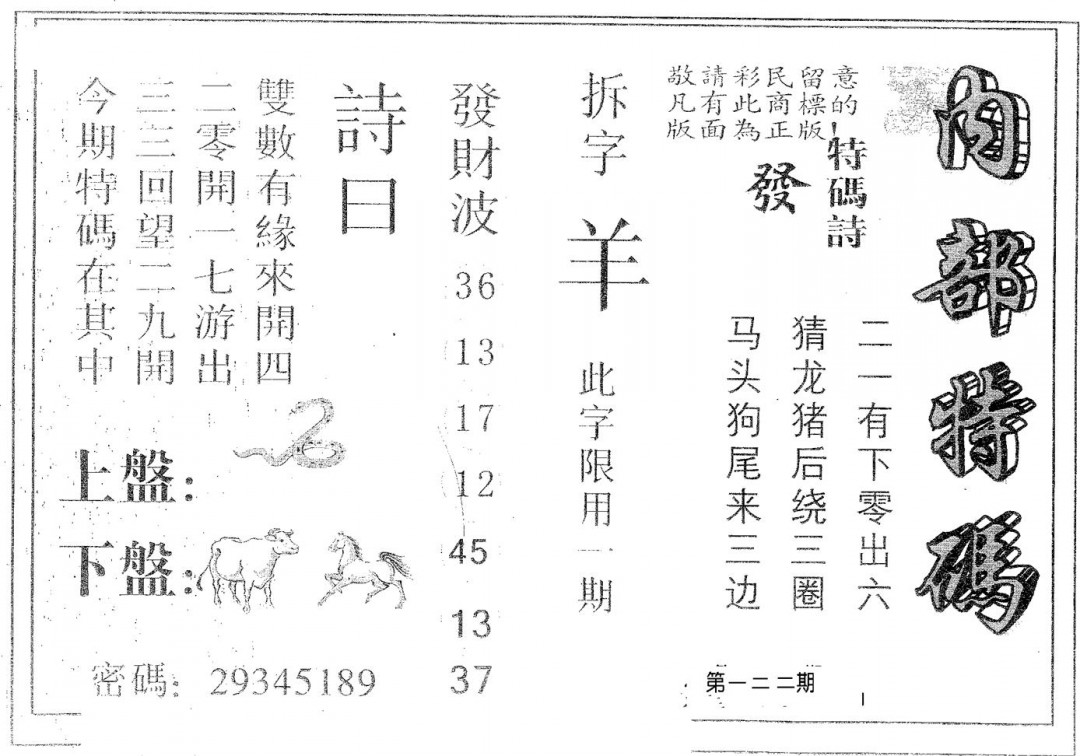 内部特碼
敬請彩民留意
凡有此商標的
版面為正版
特碼詩
發
二一有下零出六
猜龙猪后绕三圈
马头狗尾来三边
第一二二期
拆字
羊
此字限用一期
發財波
36
13
17
12
45
13
37
詩曰
雙數有緣來開四
二零開一七游出
三三回望二九開
今期特碼在其中
上盤:
下盤:
密碼: 29345189